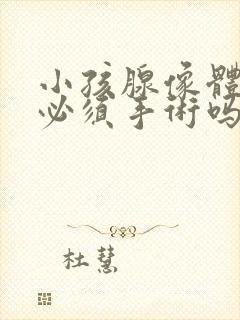 小孩腺像體
必須手術吗
杜慧